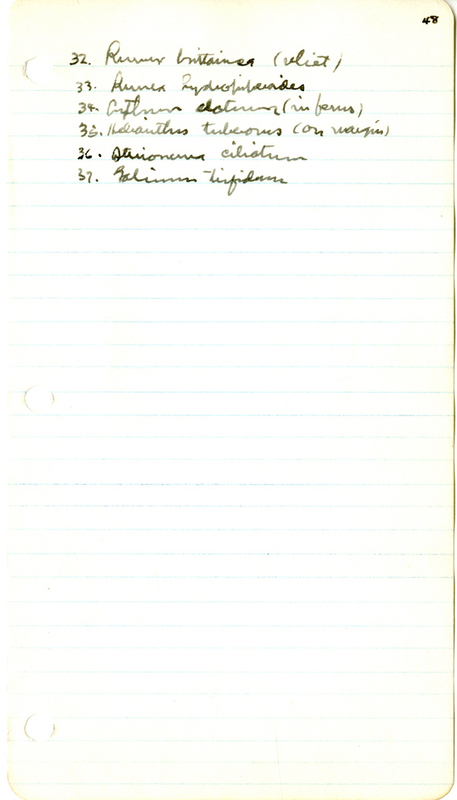 48
32. Rumex brittanica (relict)
33. Rumex hydropiperoides
34. elatum (in ferns)
35. Helianthus tuberosus (on margin)
36. Steironema ciliatum
37. Galium trifidum